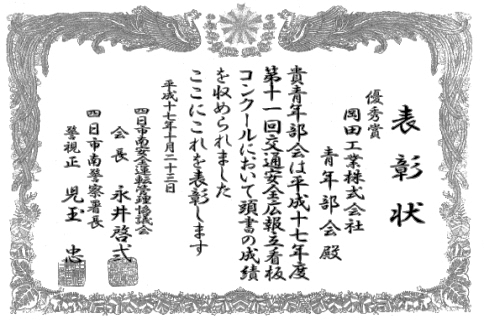 表彰状
優秀賞
岡田工業株式会社
青年部会殿
貴青年部会は平成十七年度
第十一回交通安全広報立看板
コンクールにおいて頭書の成績
を収められました
ここにこれを表彰します
平成十七年十月二十三日
四日市南安全運転管理協議会
会長 永井啓弍
四日市南警察署長
警視正 児玉 忠